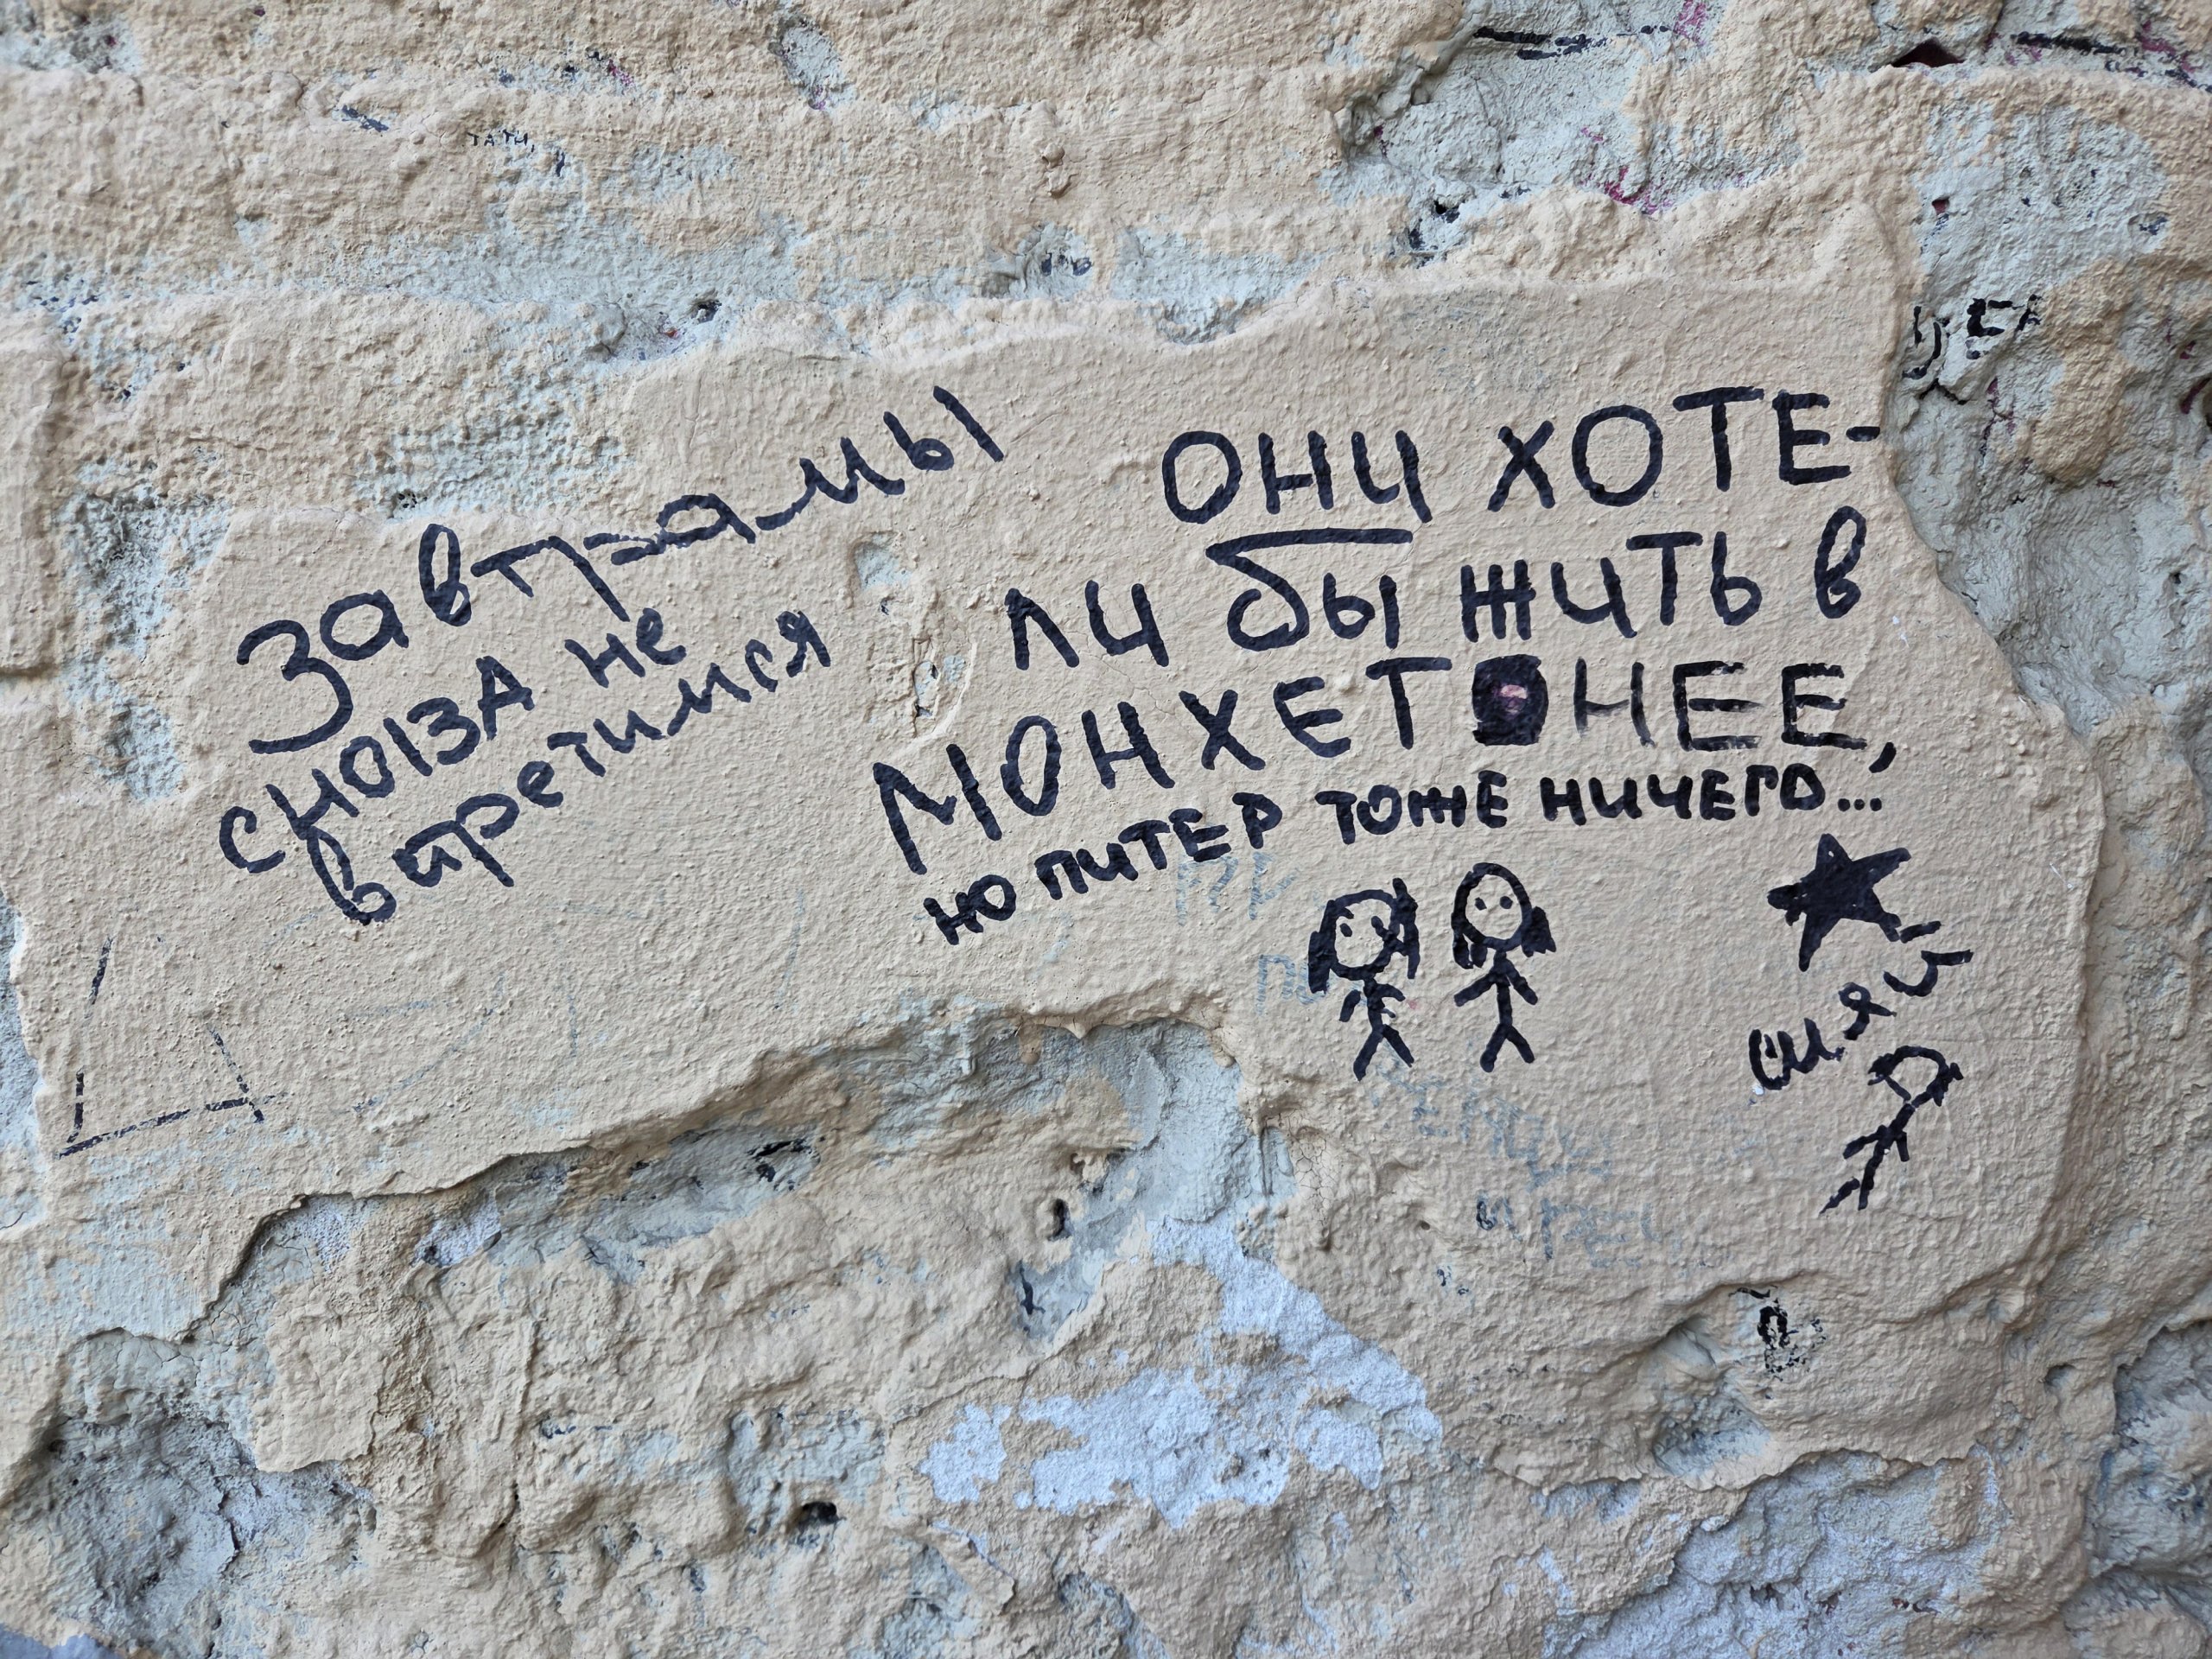 завтра мы
сновА не
встретимся
ОНИ ХОТЕ-
ЛИ бы жить в
МОНХЕТНЕЕ,
НО ПИТЕР ТОЖЕ НИЧЕГО...